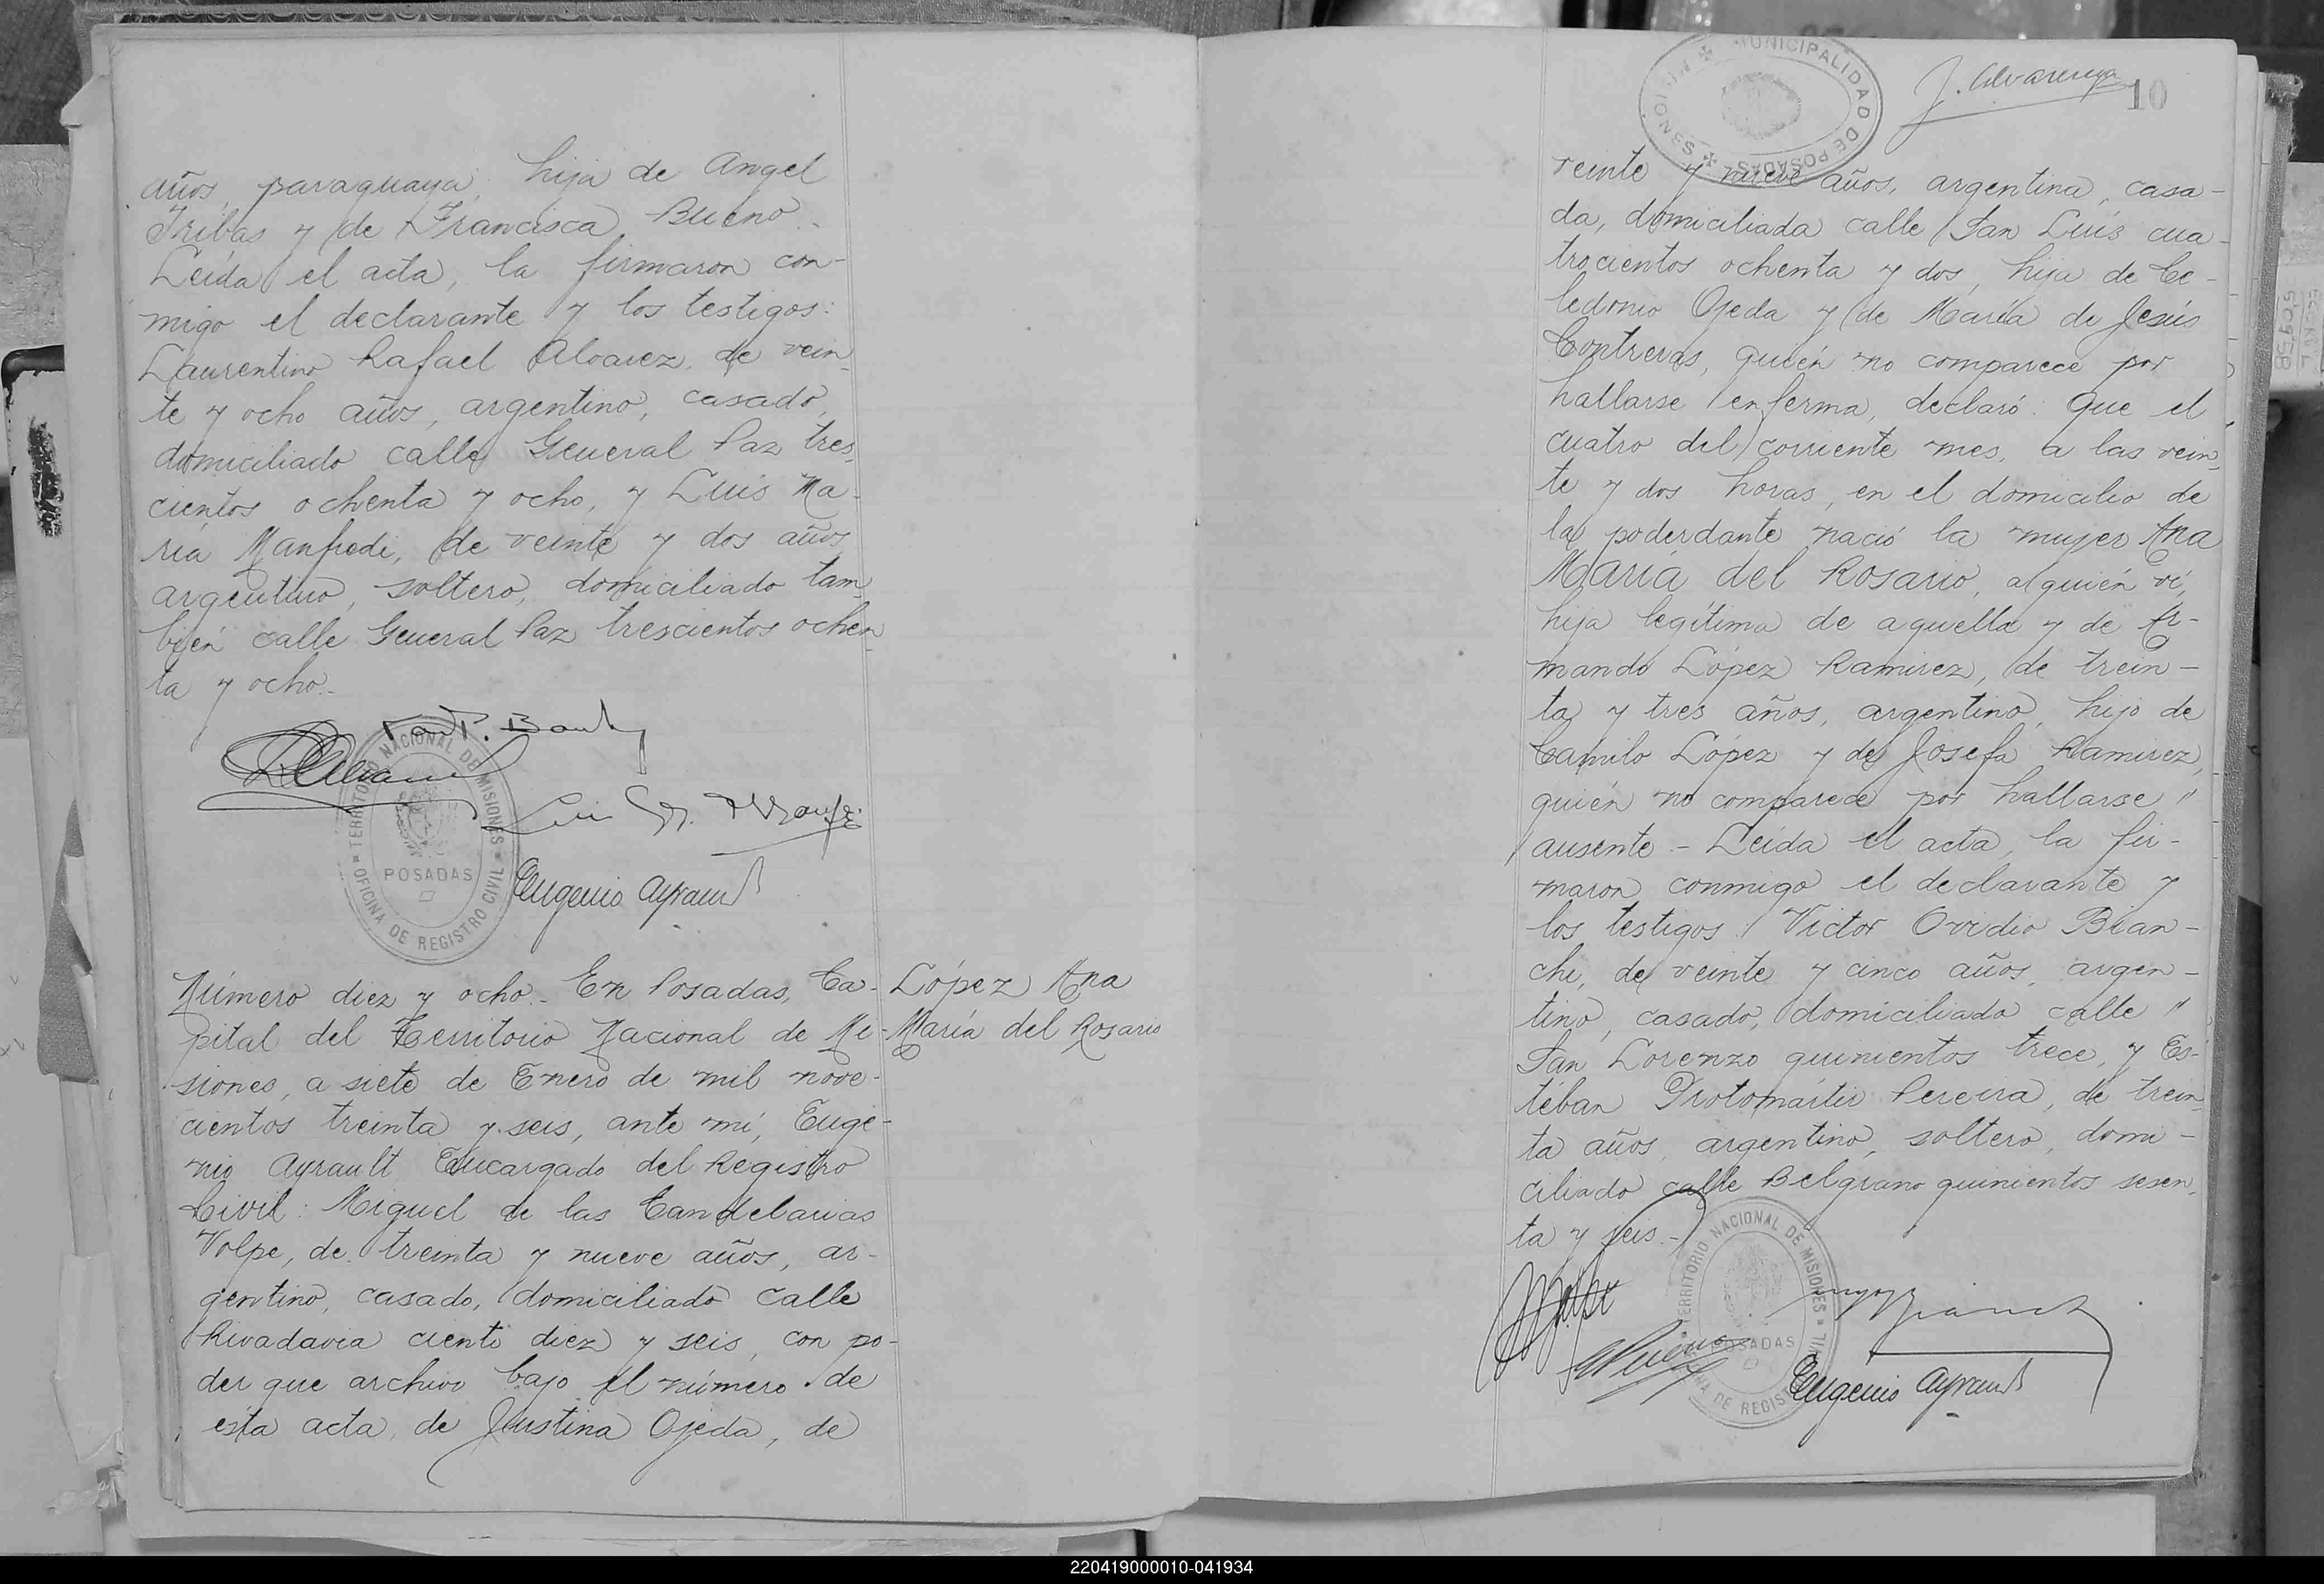 años, paraguaya, hija de Angel
Tribas y de Francisca Bueno.-
Leída el acta, la firmaron con-
migo el declarante y los testigos:
Laurentino Rafael Alvarez, de vein
te y ocho años, argentino, casado,
domiciliado calle General Paz tres
cientos ochenta y ocho, y Luis Ma-
ría Manfredi, de veinte y dos años
argentino, soltero, domiciliado tam
bién calle General Paz trescientos ochen
ta y ocho.-
TERRITORIO NACIONAL DE MISIONES
POSADAS
OFICINA DE REGISTRO CIVIL
Eugenio Ayrault
Número diez y ocho.- En Posadas, Ca-
pital del Territorio Nacional de Mi-
siones, a siete de Enero de mil nove-
cientos treinta y seis, ante mí, Euge-
nio Ayrault Encargado del Registro
Civil: Miguel de las Candelarias
Volpe, de treinta y nueve años, ar-
gentino, casado, domiciliado calle
Rivadavia ciento diez y seis, con po-
der que archivo bajo el número de
esta acta, de Justina Ojeda, de
López Ana
María del Rosario
MUNICIPALIDAD DE POSADAS
MISIONES
J. Alvarenga
10
veinte y nueve años, argentina, casa-
da, domiciliada calle San Luis cua-
trocientos ochenta y dos, hija de Ce-
ledonio Ojeda y de María de Jesús
Contreras, quién no comparece por
hallarse enferma, declaró: Que el
cuatro del corriente mes, a las vein
te y dos horas, en el domicilio de
la poderdante nació la mujer Ana
María del Rosario, a quién ví,
hija legítima de aquella y de Ar-
mando López Ramirez, de trein-
ta y tres años, argentino, hijo de
Camilo López y de Josefa Ramirez,
quién no comparece por hallarse "
ausente.- Leída el acta, la fir-
maron conmigo el declarante y
los testigos: Victor Ovidio Bian-
chi, de veinte y cinco años, argen-
tino, casado, domiciliado calle "
San Lorenzo quinientos trece, y Es-
téban Protomártir Pereira, de trein
ta años, argentino, soltero, domi-
ciliado calle Belgrano quinientos sesen
ta y seis.-
TERRITORIO NACIONAL DE MISIONES
POSADAS
Eugenio Ayrault
220419000010-041934